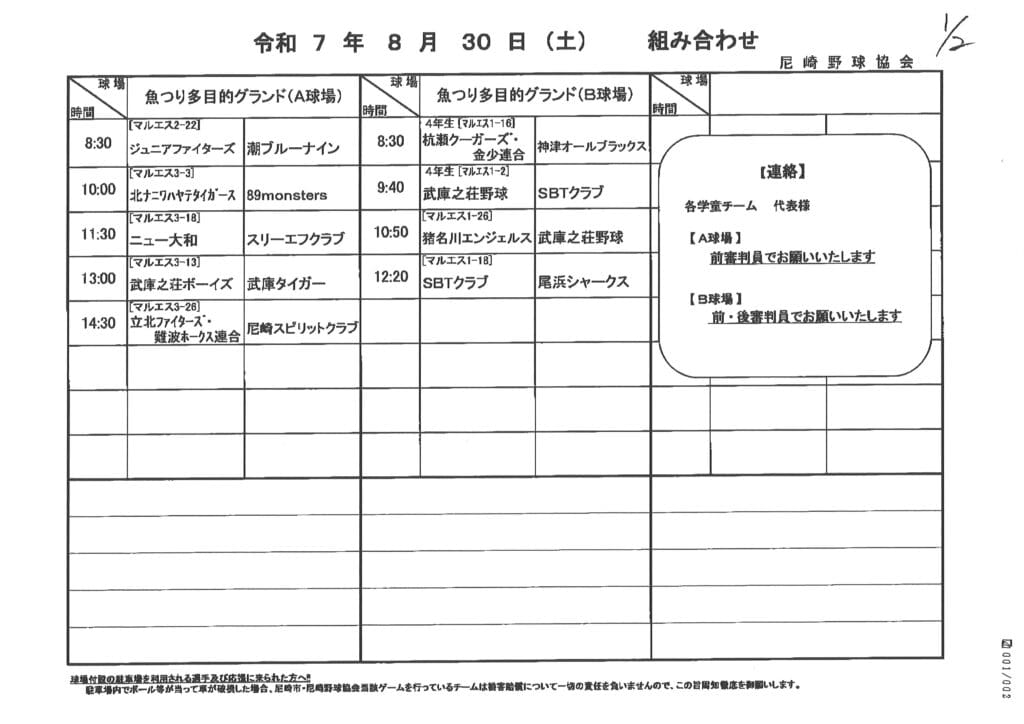 令和 7 年 8 月 30 日 (土) 組み合わせ
1/2
尼崎野球協会
球場 時間 魚つり多目的グランド(A球場) 球場 時間 魚つり多目的グランド(B球場) 球場 時間
8:30 [マルエス2-22] ジュニアファイターズ 潮ブルーナイン
10:00 [マルエス3-3] 北ナニワハヤテタイガース 89monsters
11:30 [マルエス3-18] ニュー大和 スリーエフクラブ
13:00 [マルエス3-13] 武庫之荘ボーイズ 武庫タイガー
14:30 [マルエス3-26] 立北ファイターズ・難波ホークス連合 尼崎スピリットクラブ
8:30 4年生 [マルエス1-16] 杭瀬クーガーズ・金少連合 神津オールブラックス
9:40 4年生 [マルエス1-2] 武庫之荘野球 SBTクラブ
10:50 [マルエス1-26] 猪名川エンジェルス 武庫之荘野球
12:20 [マルエス1-18] SBTクラブ 尾浜シャークス
【連絡】
各学童チーム 代表様
【A球場】
前審判員でお願いいたします
【B球場】
前・後審判員でお願いいたします
球場付設の駐車場を利用される選手及び応援に来られた方へ!!
駐車場内でボール等が当って車が破損した場合、尼崎市・尼崎野球協会当該ゲームを行っているチームは損害賠償について一切の責任を負いませんので、この旨周知徹底を御願いします。
001/002